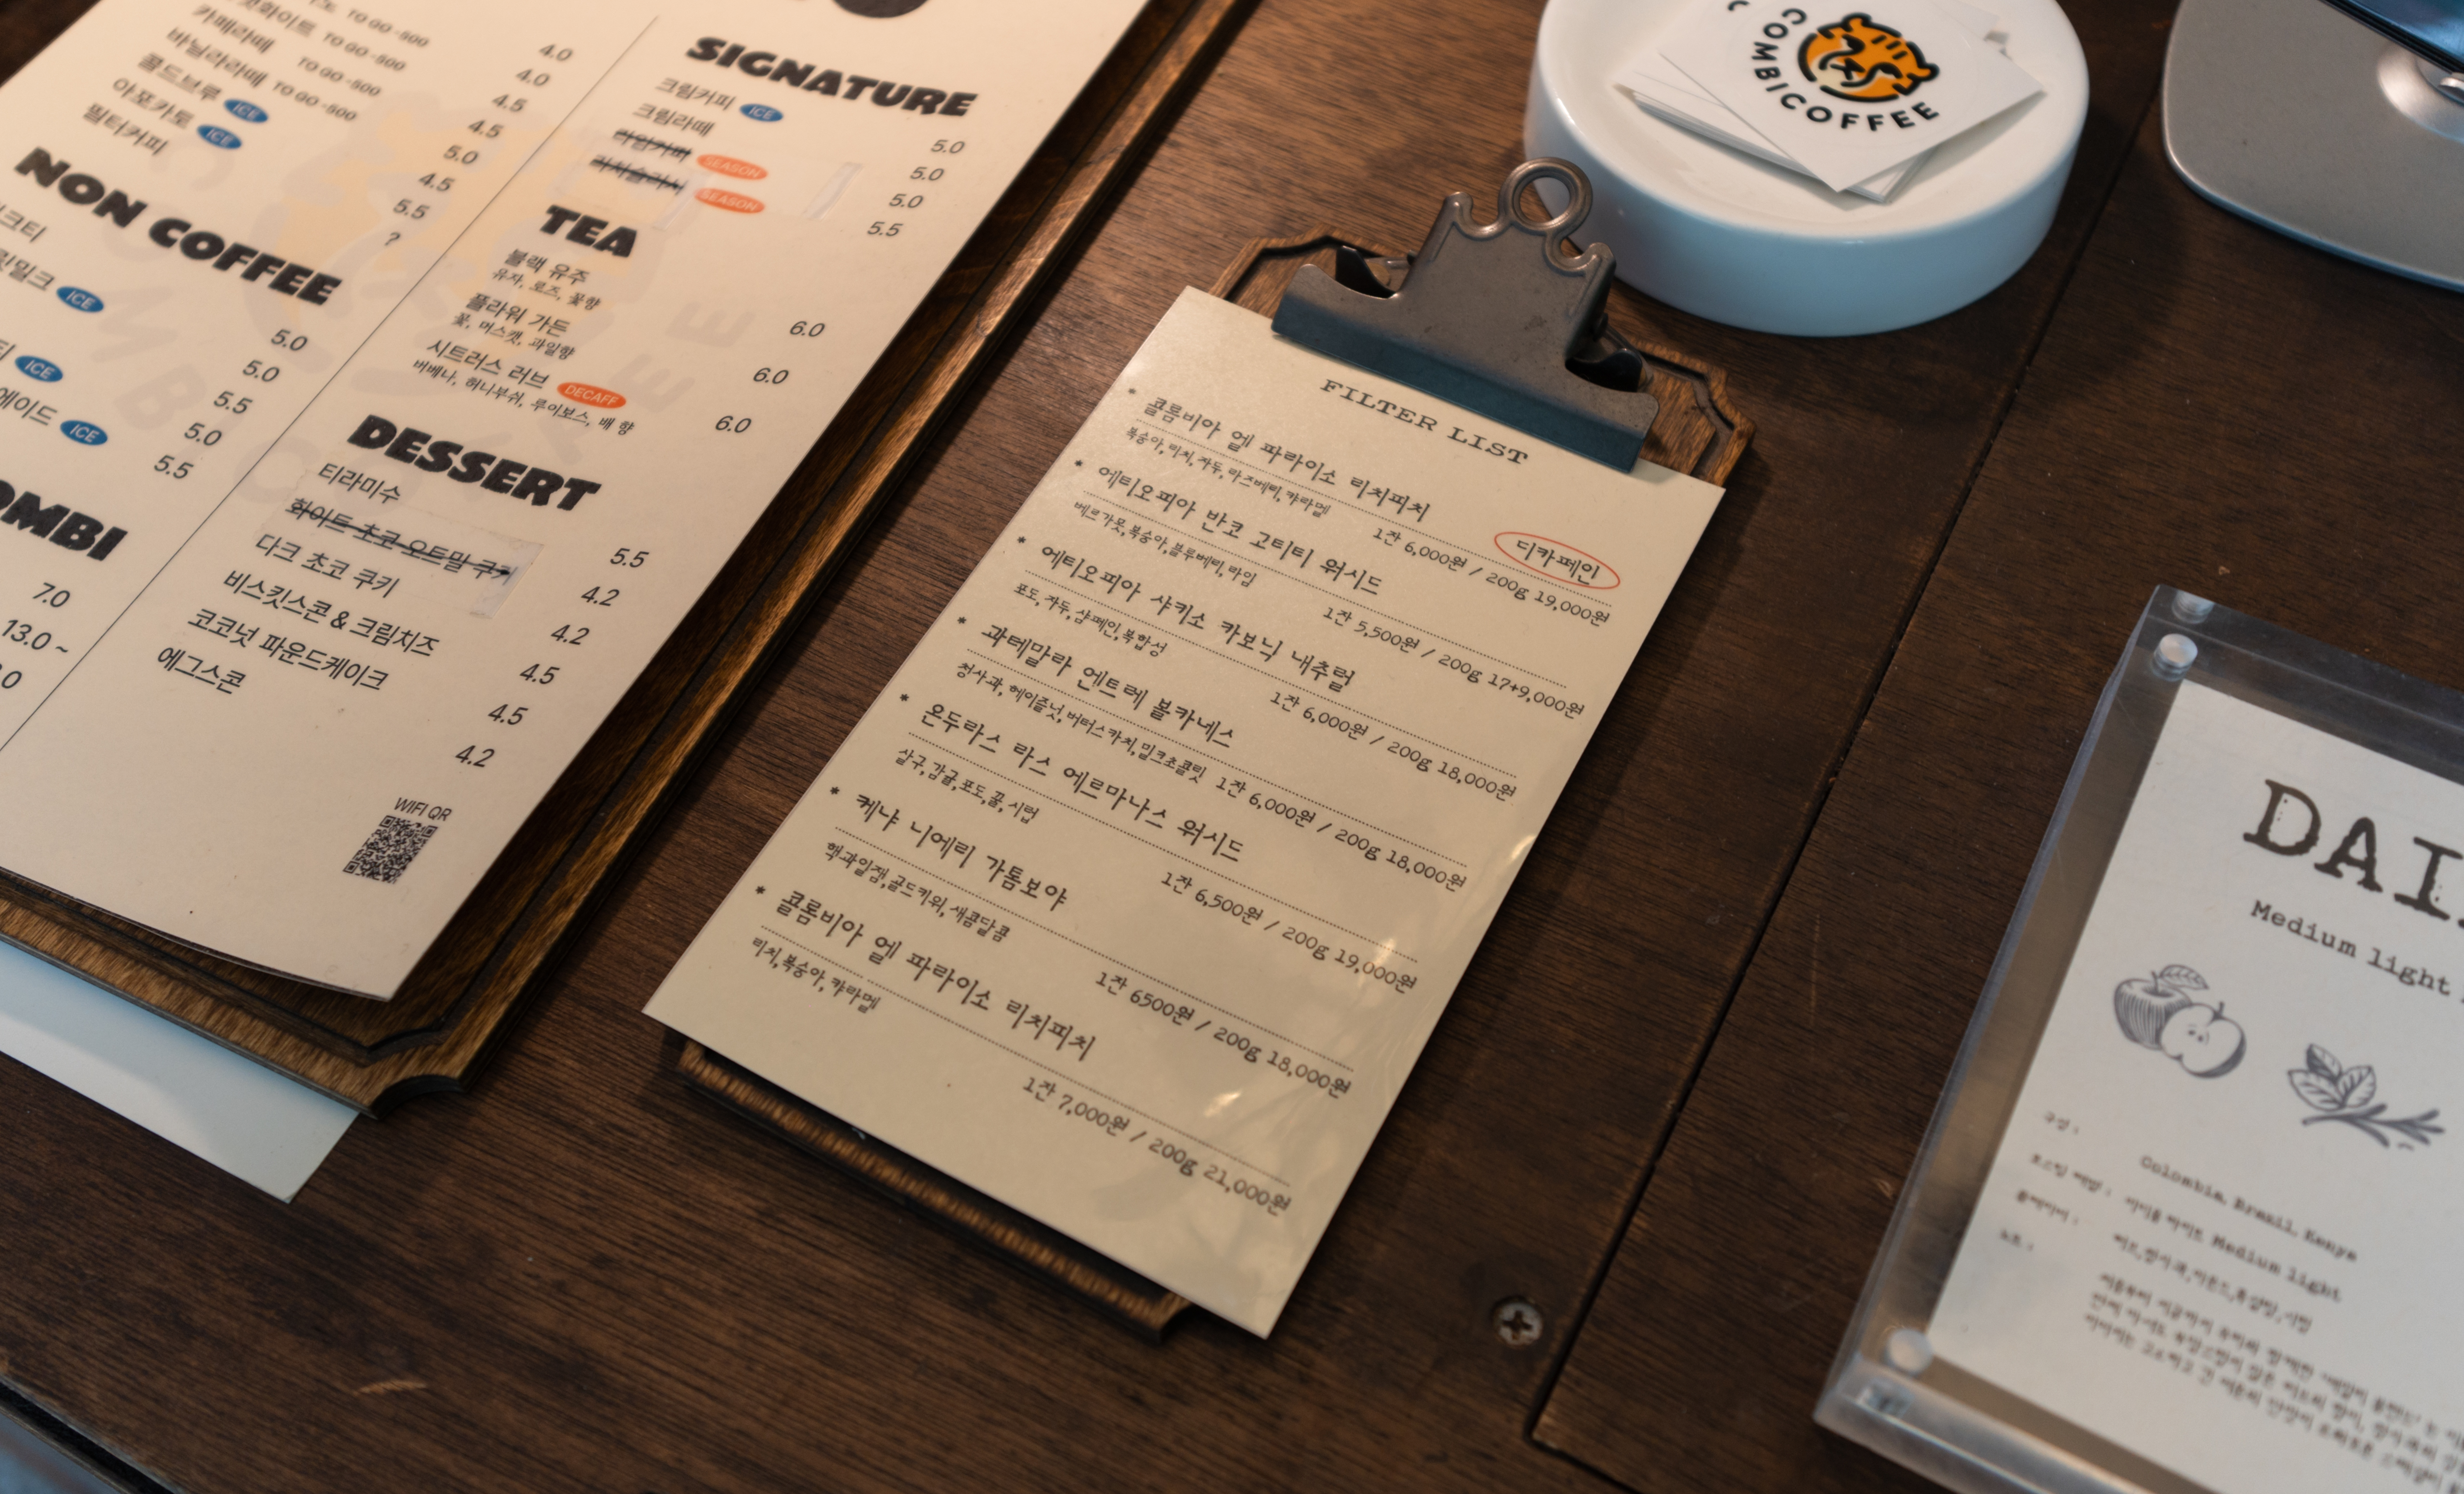 TO GO -500
플랫화이트 TO GO -500
카페라떼 TO GO -500
바닐라라떼 TO GO -500
콜드브루 ICE
아포카토 ICE
필터커피
4.0
4.0
4.5
4.5
5.0
4.5
5.5
?
NON COFFEE
밀크티
ICE
ICE
에이드 ICE
5.0
5.0
5.5
5.0
5.5
OMBI
7.0
13.0 ~
.0
SIGNATURE
크림커피 ICE 5.0
크림라떼 5.0
라임커피 SEASON 5.0
리치슬러시 SEASON 5.5
TEA
블랙 유주 6.0
유자, 로즈, 꽃향
플라워 가든 6.0
꽃, 머스캣, 과일향
시트러스 러브 DECAFF 6.0
버베나, 허니부쉬, 루이보스, 배 향
DESSERT
티라미수 5.5
화이트 초코 오트밀 쿠키 4.2
다크 초코 쿠키 4.2
비스킷스콘 & 크림치즈 4.5
코코넛 파운드케이크 4.5
에그스콘 4.2
WIFI QR
FILTER LIST
* 콜롬비아 엘 파라이소 리치피치 디카페인
복숭아, 리치, 자두, 라즈베리, 캬라멜 1잔 6,000원 / 200g 19,000원
* 에티오피아 반코 고티티 워시드
베르가못, 복숭아, 블루베리, 라임 1잔 5,500원 / 200g 17+9,000원
* 에티오피아 샤키소 카보닉 내추럴
포도, 자두, 샴페인, 복합성 1잔 6,000원 / 200g 18,000원
* 과테말라 엔트레 볼카네스
청사과, 헤이즐넛, 버터스카치, 밀크초콜릿 1잔 6,000원 / 200g 18,000원
* 온두라스 라스 에르마나스 워시드
살구, 감귤, 포도, 꿀, 시럽 1잔 6,500원 / 200g 19,000원
* 케냐 니에리 가톰보야
핵과일잼, 골드키위, 새콤달콤 1잔 6500원 / 200g 18,000원
* 콜롬비아 엘 파라이소 리치피치
리치, 복숭아, 캬라멜 1잔 7,000원 / 200g 21,000원
COMBICOFFEE
DAI
Medium light
구성 :
Colombia Brazil Kenya
Medium light
노트 :